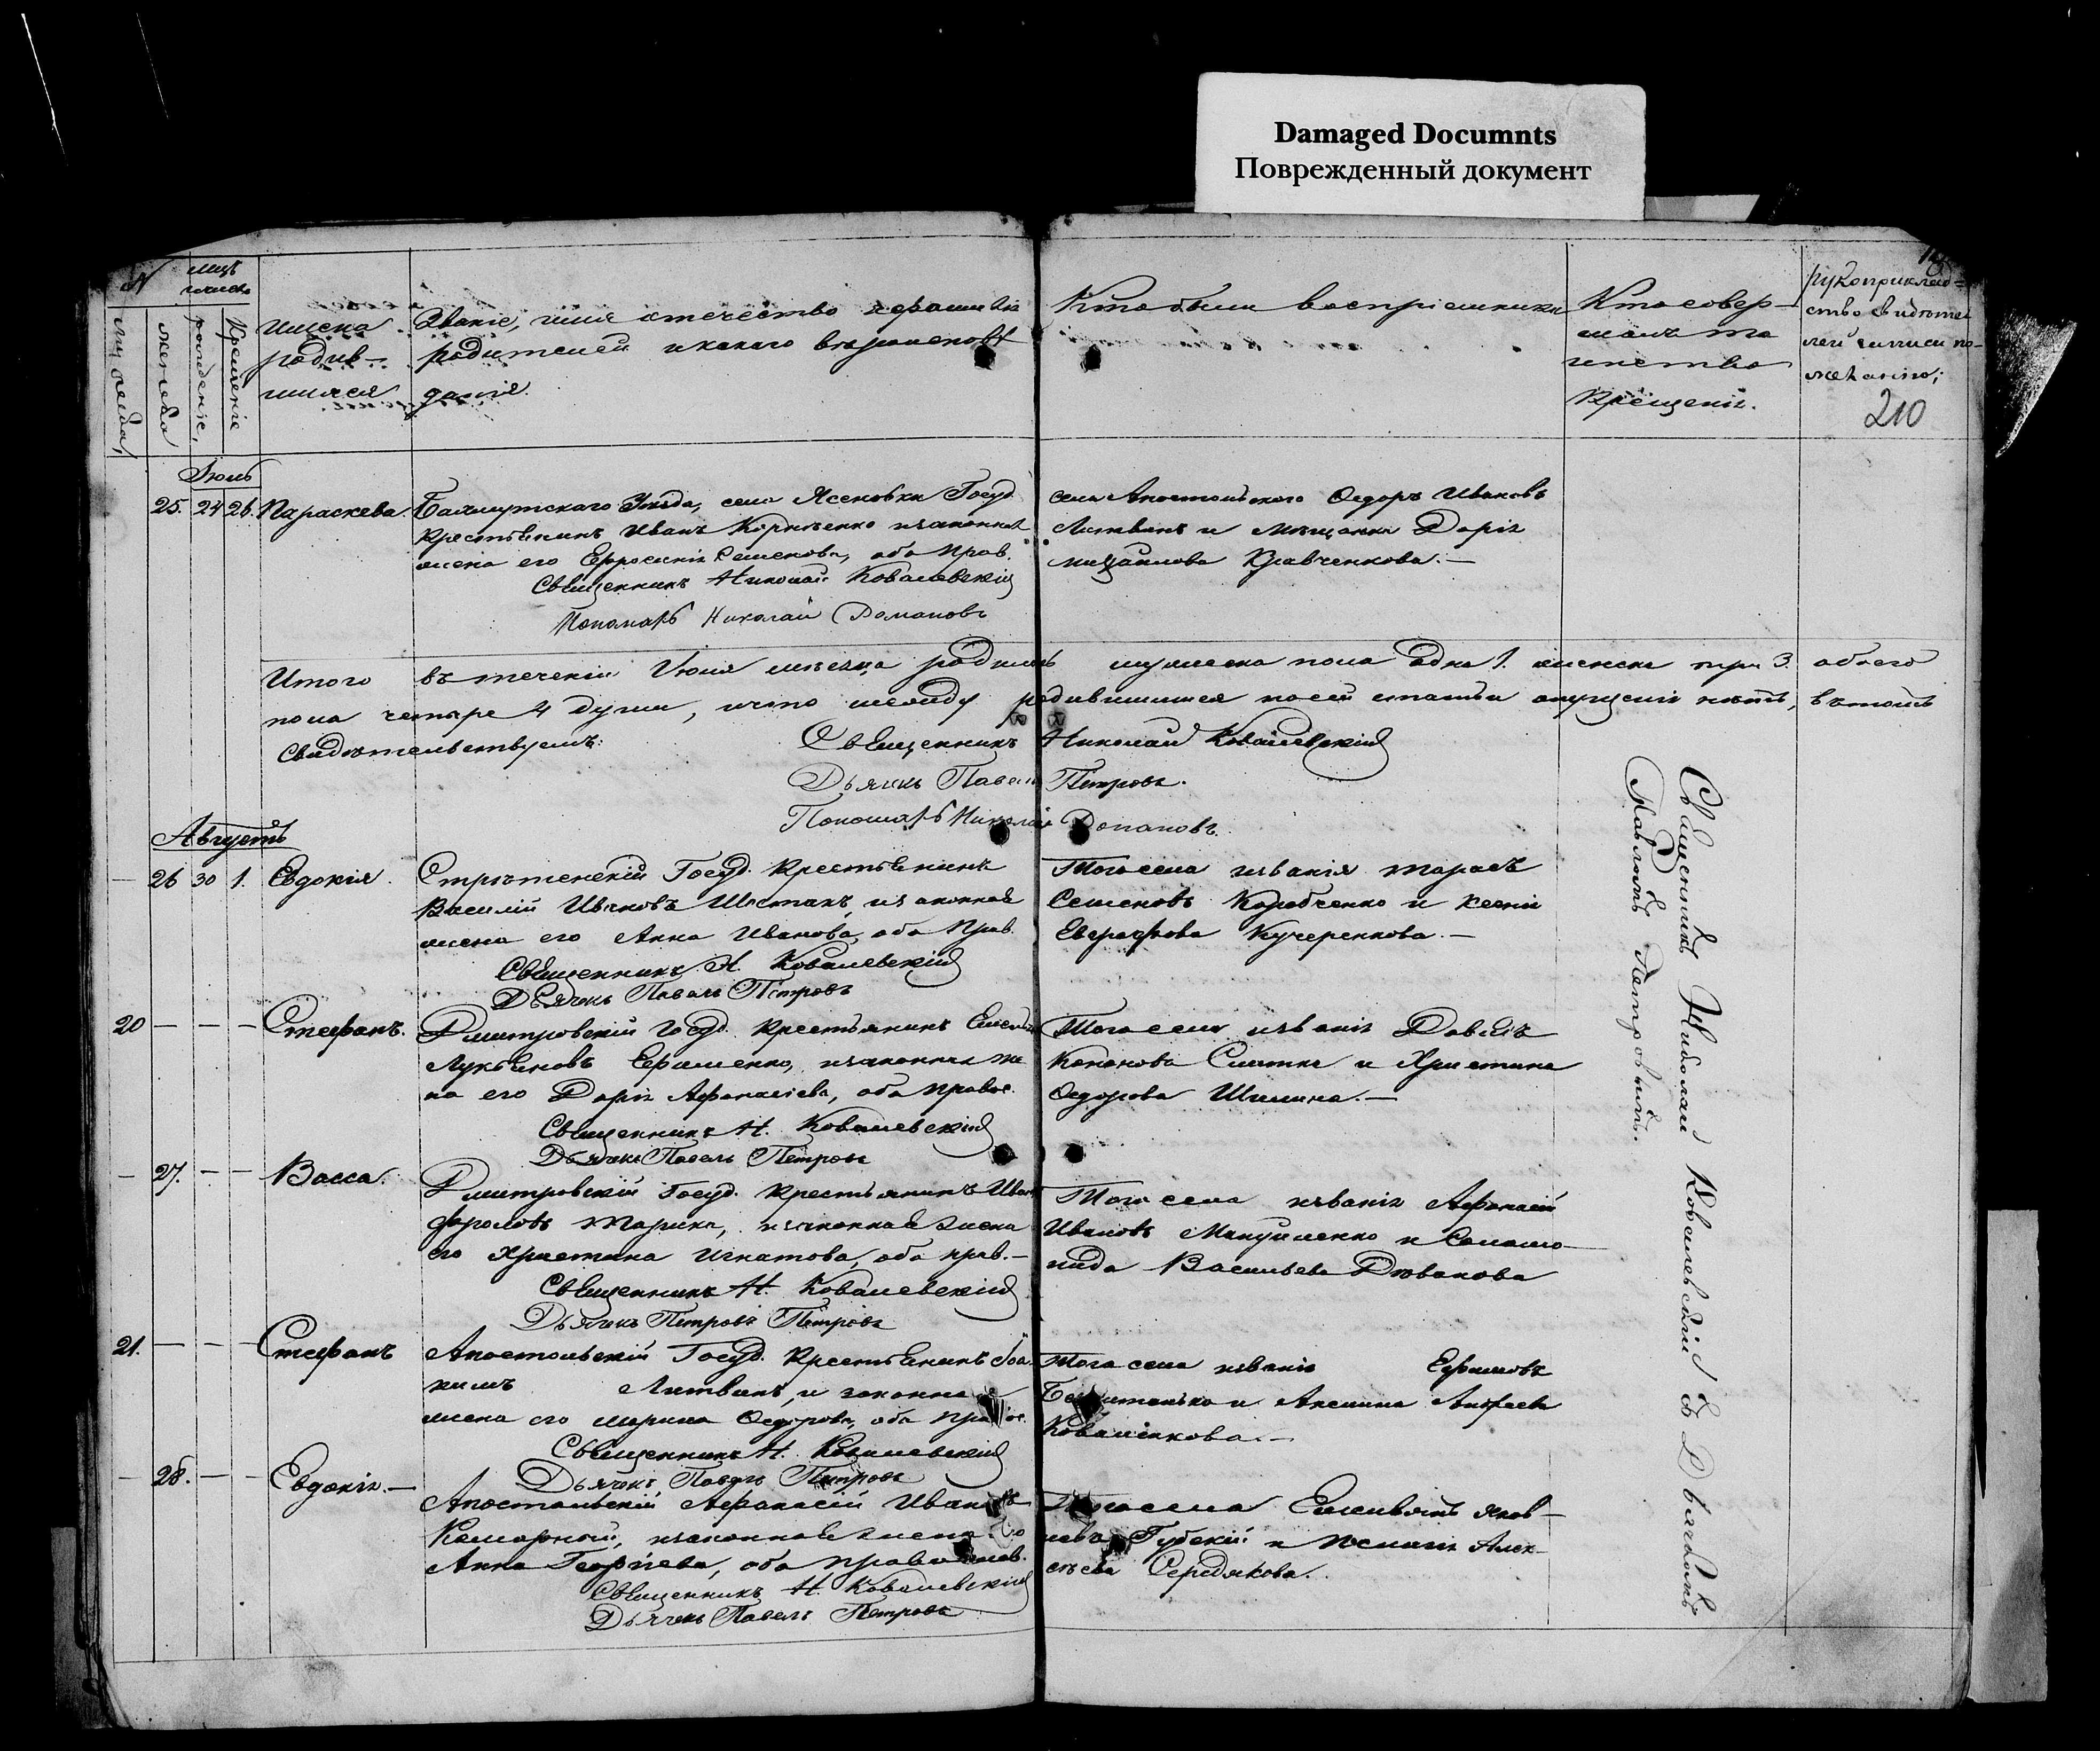 Damaged Documnts
Поврежденный документ
№
мужеска
женска
рожденіе,
Крещеніе
имена
родив-
шихся
Званіе, имя отечество и фамилія
родителей и какого вероисповѣ
данія.
Кто были воспріемники
Кто совер-
шалъ та
инство
Крещенія.
рукоприклад-
ство свидѣте
лей записи по-
желанію;
210
25. 24 26. Параскева.
Бахмутскаго Уѣзда, села Ясеновки Госуд.
Крестьянинъ Иванъ Корниенко и законная
жена его Ефросинія Семенова, оба Прав.
Священникъ Николай Ковалевскій
Пономарь Николай Романовъ
села Апостольскаго Ѳедоръ Ивановъ
Литвинъ и мѣщанка Дарія
михаилова Кравченкова.—
Итого въ теченіи Июля мѣсяца родилось мужеска пола одна 1. женска три 3. обоего
пола четыре 4 души, и что между родившимися по сей статьи опущенія нѣтъ, въ томъ
Свидѣтельствуемъ:
Священникъ Николай Ковалевскій
Дьячекъ Павелъ Петровъ.
Пономарь Николай Романовъ.
Августъ
26 30 1. Евдокія.
Стрѣтенскій Госуд. Крестьянинъ
Василій Ивановъ Шостакъ, и законная
жена его Анна Иванова, оба Прав.
Священникъ Н. Ковалевскій
Дьячекъ Павелъ Петровъ
Того села и званія тарасъ
Семеновъ Коробченко и Ксенія
Евграфова Кучеренкова.—
20 — — — Стефанъ.
Дмитровскій Госуд. Крестьянинъ
Лукьяновъ Ефименко, и законная же
на его Дарія Афанасіева, оба Правос.
Священникъ Н. Ковалевскій
Дьячекъ Павелъ Петровъ
Того села и званія Давидъ
Кононовъ и Христина
Ѳедорова Шилина.—
— 27. — — Васса.
Дмитровскій Госуд. Крестьянинъ Иванъ
Фроловъ, и законная жена
его Христина Игнатова, оба прав.—
Священникъ Н. Ковалевскій
Дьячекъ Петровъ Петровъ
Того села и званія Афанасій
Ивановъ и Соломо-
нида Васильева Дювакова
21. — — — Стефанъ
Апостольскій Госуд. Крестьянинъ Іоа-
кимъ Литвинъ, и законная
жена его марина Ѳедорова, оба
Священникъ Н. Ковалевскій
Дьячекъ Павелъ Петровъ
Того села и званія Ефимовъ
и Аксинія Андреева
Коваленкова.—
— 28. — — Евдокія.—
Апостольскій Афанасій
Коморный, и законная жена его
Анна Георгіева, оба
Священникъ Н. Ковалевскій
Дьячекъ Павелъ Петровъ
Того села Емельянъ Яков-
левъ Губскій и Алек-
сѣева Середякова.
Священникъ Николай Ковалевскій съ Дьячкомъ
Павломъ Петровымъ.